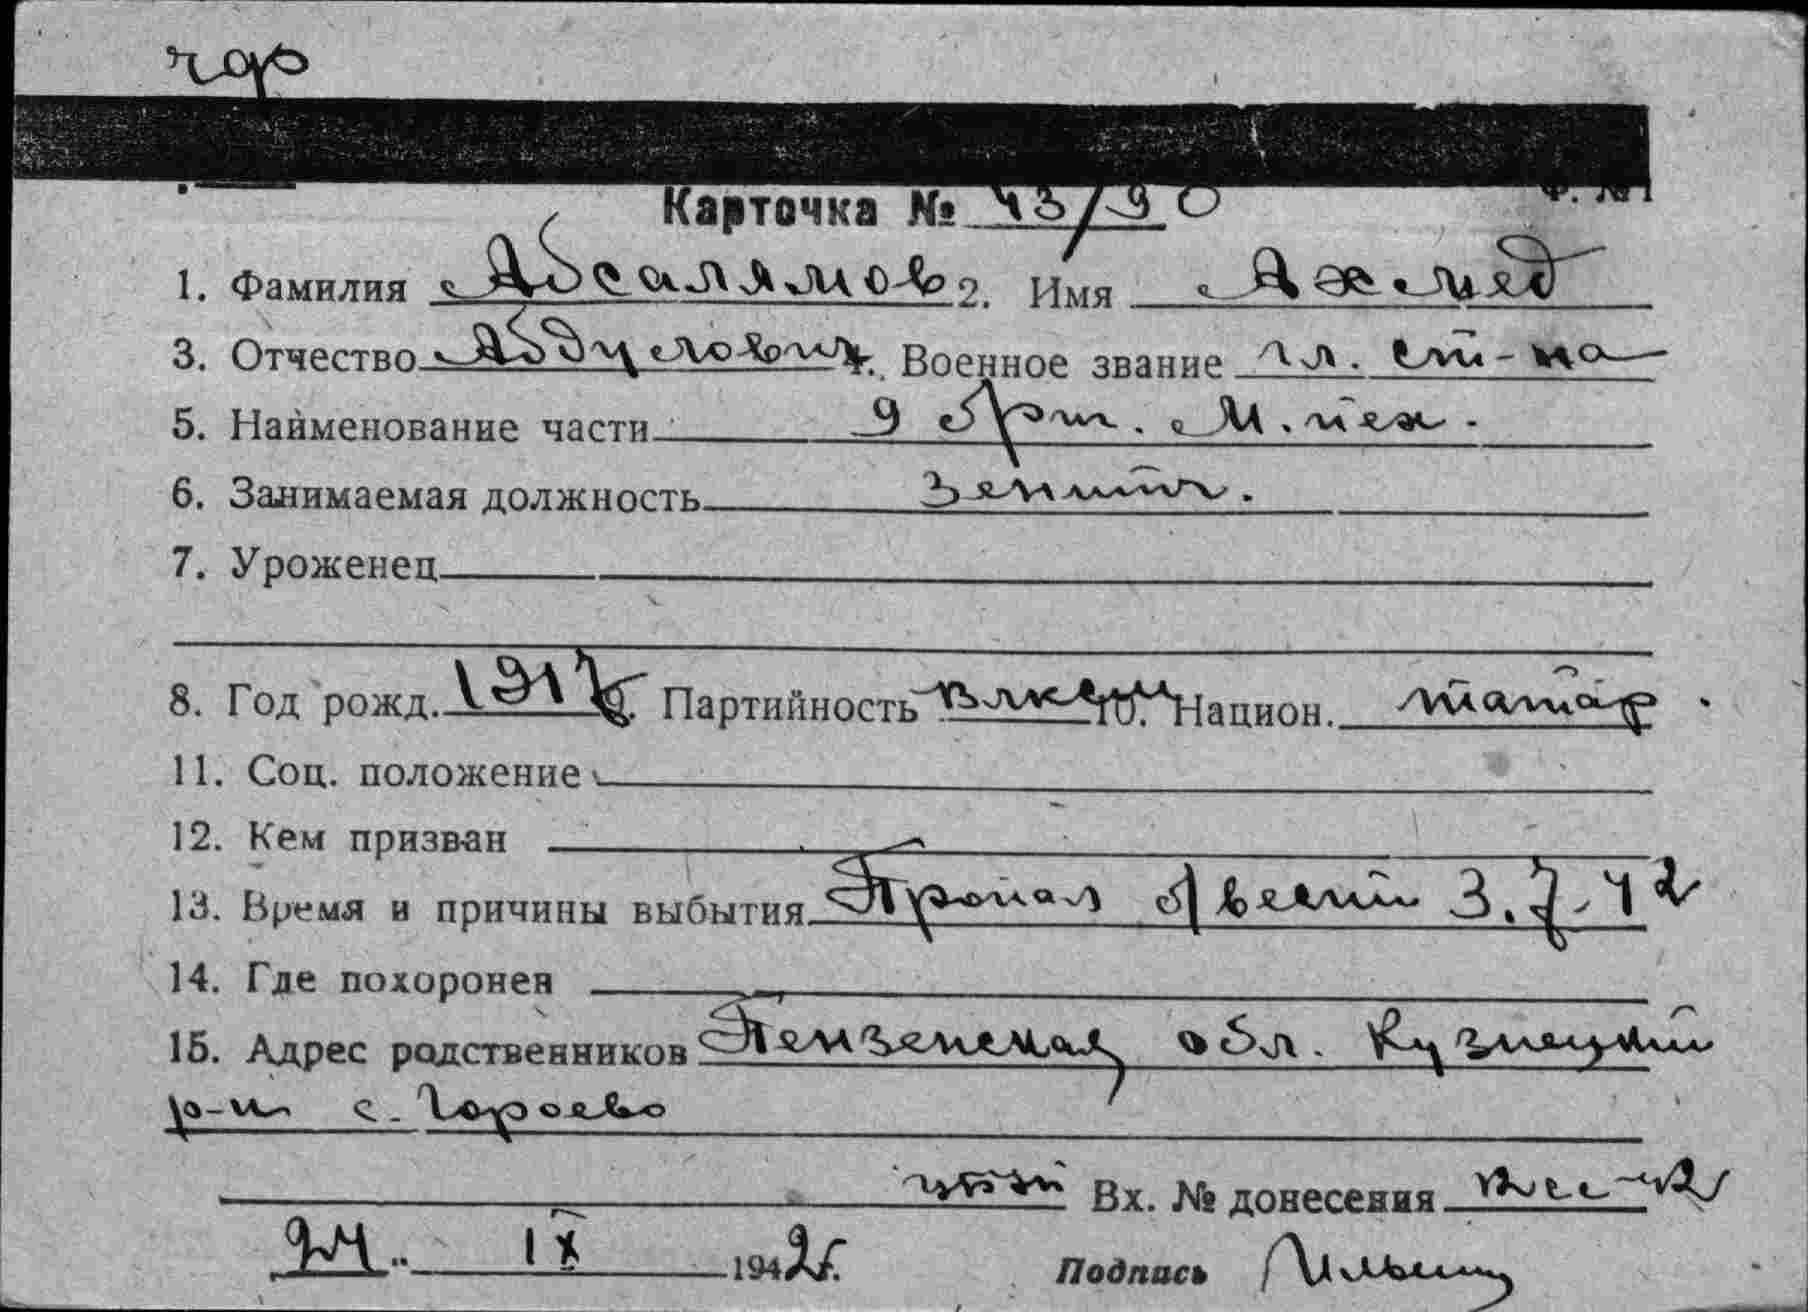 Карточка № 43/90
1. Фамилия Абсалямов 2. Имя Ахмед
3. Отчество Абдулович 4. Военное звание гл. ст-на
5. Наименование части 9 бр. м. пех.
6. Занимаемая должность зенитч.
7. Уроженец
8. Год рожд. 1917 г. Партийность ВЛКСМ 10. Национ. татар
11. Соц. положение
12. Кем призван
13. Время и причины выбытия Пропал б/вести 3.7.42
14. Где похоронен
15. Адрес родственников Пензенская обл. Кузнецкий
р-н с.
Вх. № донесения
24 IX 1942 г. Подпись